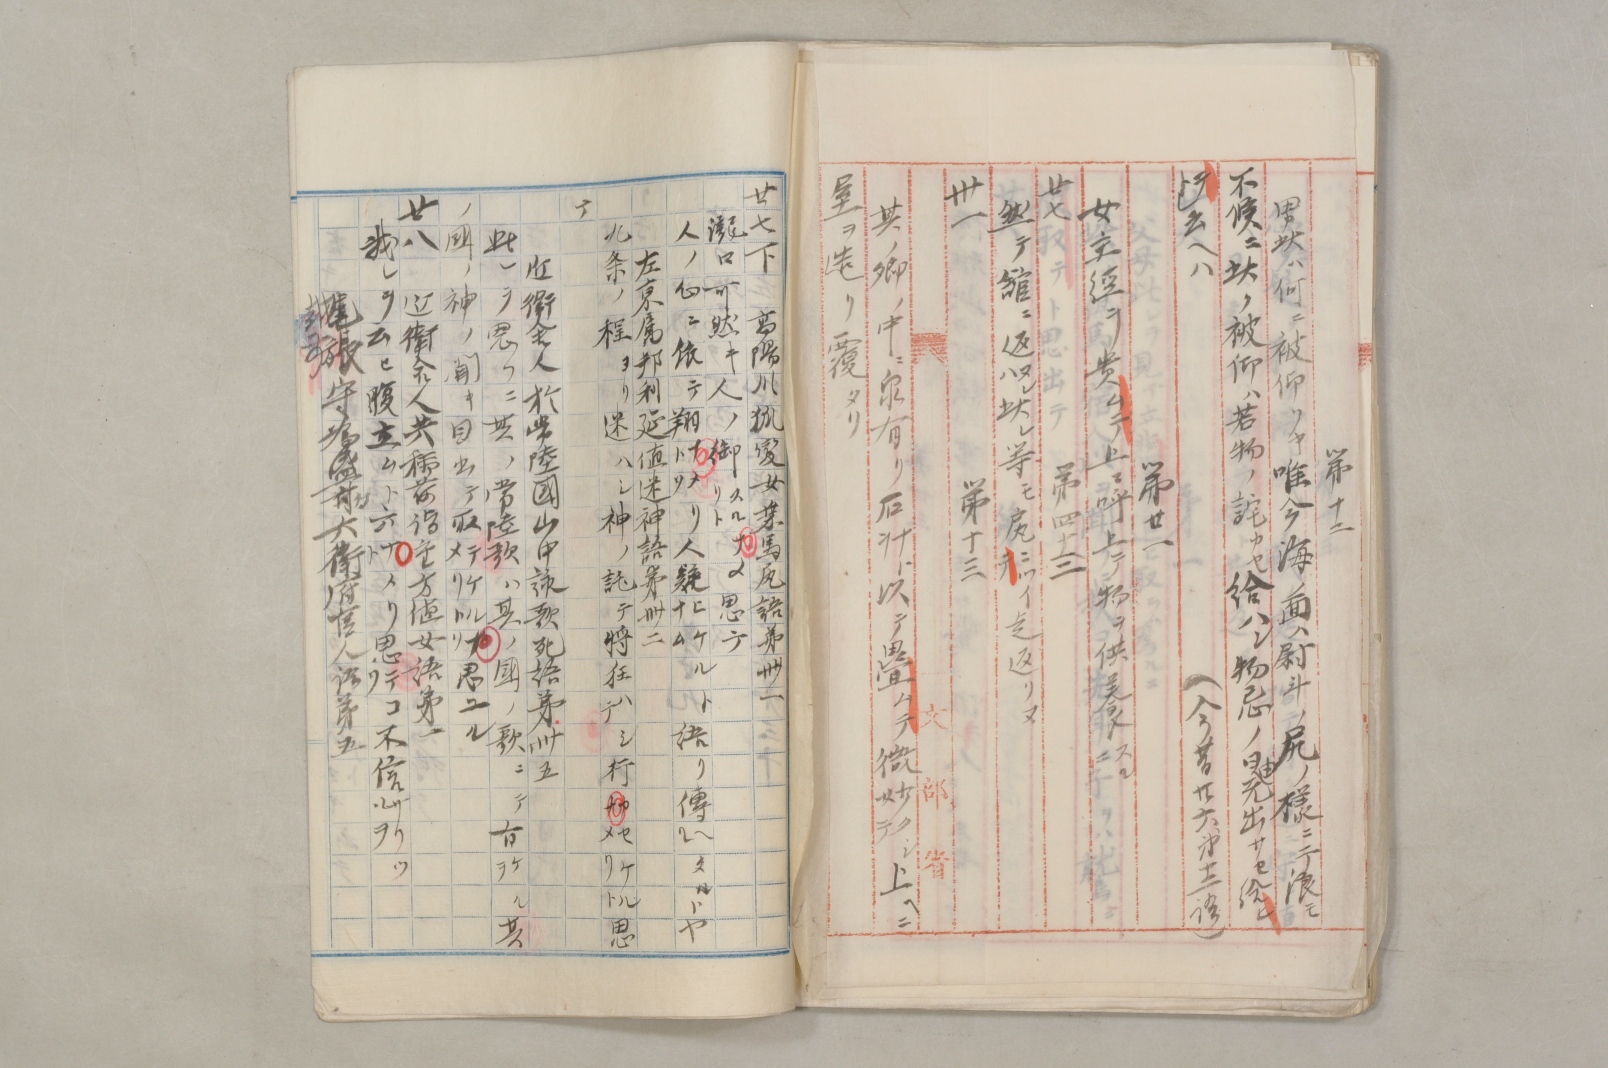 第十二
男共ハ何ニ被仰ソヤ唯今海ノ面ハ尉斗ノ尻ノ様ニテ浪モ
不候ニ此ノ被仰ハ若物ノ詫カセ給ハシ物忌ノ
ト云ヘハ
(今昔廿六第十二語)
第廿一
女主經ヲ貴ムテ上ニ呼上テ物ヲ供養スルニ
廿七
第四十三
然テ館ニ返ヌレハ此レ等モ尻ニツイテ走返リヌ
卅一
第十三
其ノ郷ノ中ニ泉有リ石ナトヲ以テ畳ムテ微妙クシテ上ヘニ
屋ヲ造リ覆タリ
文部省
廿七下
高陽川狐變女乗馬尻語第卌一
瀧口可然キ人ノ御スルナメリト思テ
人ノ心ニ依テ翔トナメリ人疑ヒケルトナム語リ傳ヘタルトヤ
左京属邦利延値迷神語第卌二
九条ノ程ヨリ迷ハシ神ノ託テ將狂ハシ行セケルナメリト思テ
近衛舎人於常陸國山中詠歌死語第卌五
此レヲ思フニ其ノ常陸歌ハ其ノ國ノ歌ニテ有ケルヲ其
ノ國ノ神ノ聞キ目出テ取テケルナメリトソ思ユル
廿八
近衛舎人共稲荷詣重方値女語第一
我レヲ云ヒ腹立ムト云ナメリト思テコソ不信サリツ
尾張守
六衛府官人語第五